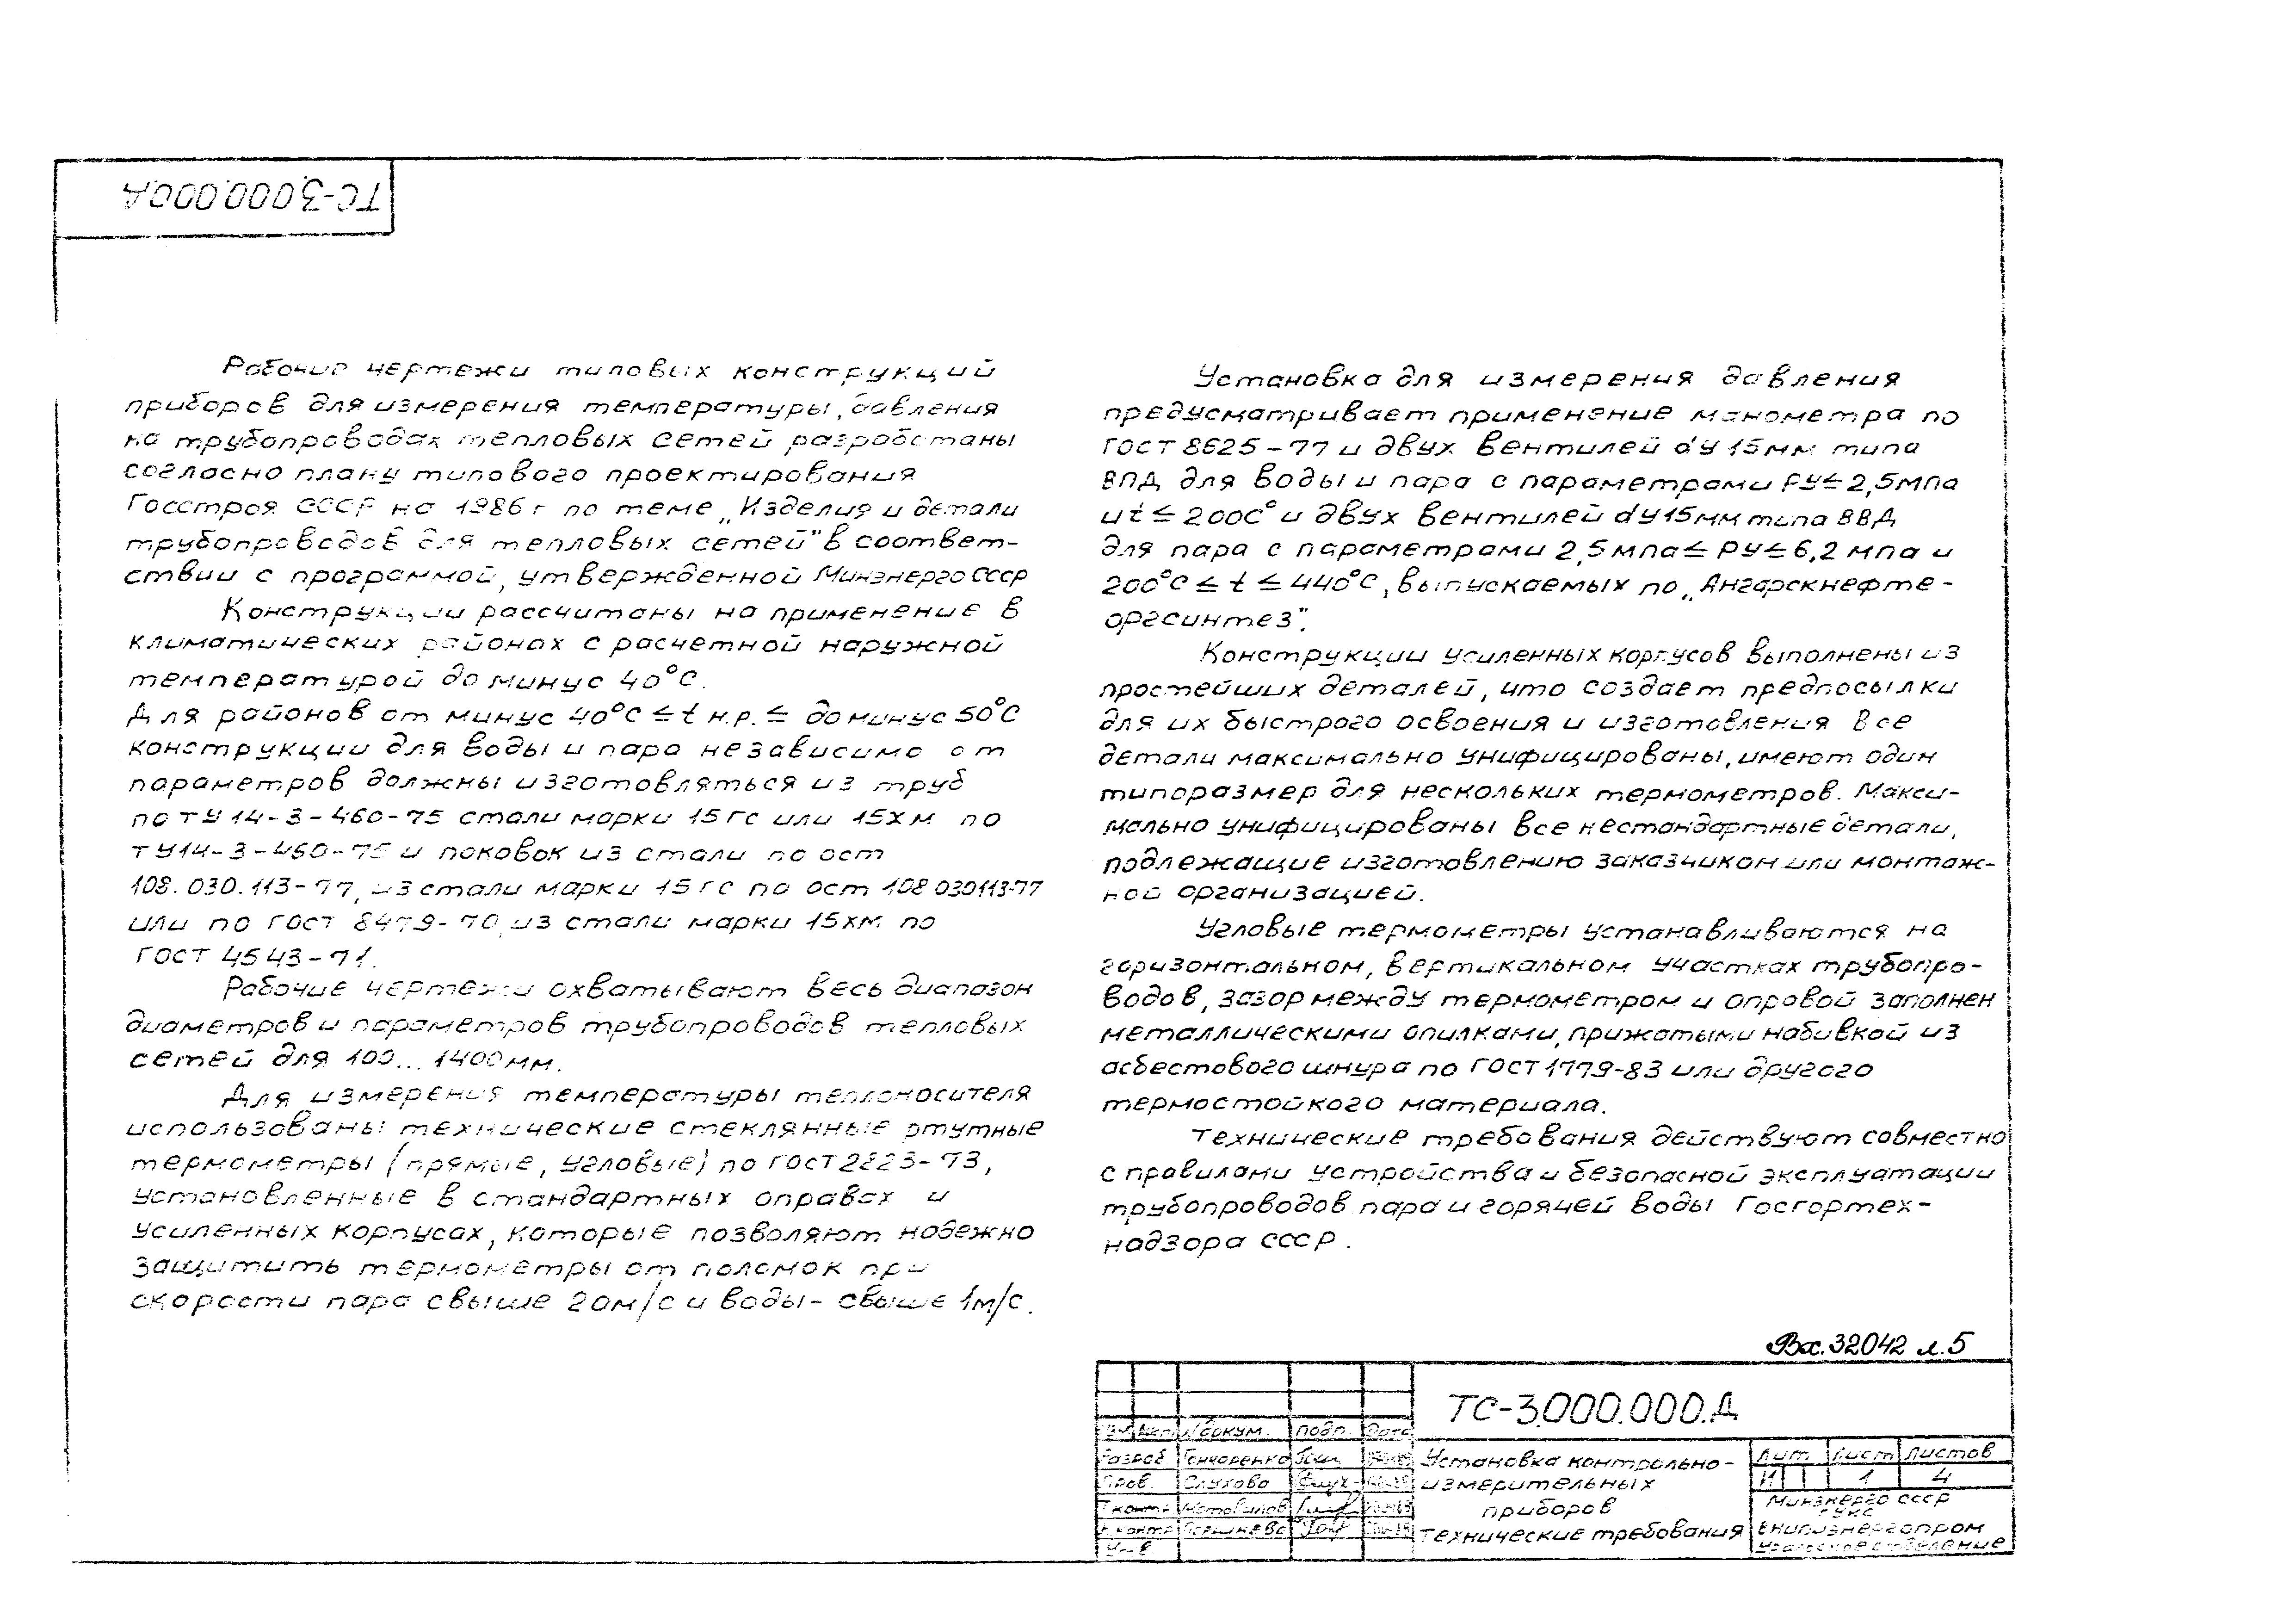 ТС-3.000.000.Д
Рабочие чертежи типовых конструкций
приборов для измерения температуры, давления
на трубопроводах тепловых сетей разработаны
согласно плану типового проектирования
Госстроя СССР на 1986 г по теме „Изделия и детали
трубопроводов для тепловых сетей" в соответ-
ствии с программой, утвержденной Минэнерго СССР
Конструкции рассчитаны на применение в
климатических районах с расчетной наружной
температурой до минус 40°С.
Для районов от минус 40°С ≤ t н.р. ≤ до минус 50°С
конструкции для воды и пара независимо от
параметров должны изготовляться из труб
по ТУ 14-3-460-75 стали марки 15ГС или 15ХМ по
ТУ14-3-460-75 и поковок из стали по ост
108.030.113-77, из стали марки 15ГС по ост 108 030113-77
или по ГОСТ 8479-70, из стали марки 15ХМ по
ГОСТ 4543-71.
Рабочие чертежи охватывают весь диапазон
диаметров и параметров трубопроводов тепловых
сетей для 100... 1400мм.
Для измерения температуры теплоносителя
использованы технические стеклянные ртутные
термометры (прямые, угловые) по ГОСТ 2823-73,
установленные в стандартных оправах и
усиленных корпусах, которые позволяют надежно
защитить термометры от поломок при
скорости пара свыше 20м/с и воды- свыше 1м/с.
Установка для измерения давления
предусматривает применение манометра по
ГОСТ 8625-77 и двух вентилей dу 15мм типа
ВПД для воды и пара с параметрами Ру≤2,5мпа
и t ≤ 200С° и двух вентилей dу15мм типа ВВД
для пара с параметрами 2,5мпа ≤ Ру ≤ 6,2 мпа и
200°С ≤ t ≤ 440°С, выпускаемых по „Ангарскнефте-
оргсинтез".
Конструкции усиленных корпусов выполнены из
простейших деталей, что создает предпосылки
для их быстрого освоения и изготовления Все
детали максимально унифицированы, имеют один
типоразмер для нескольких термометров. Макси-
мально унифицированы все нестандартные детали,
подлежащие изготовлению заказчиком или монтаж-
ной организацией.
Угловые термометры устанавливаются на
горизонтальном, вертикальном участках трубопро-
водов, зазор между термометром и оправой заполнен
металлическими опилками, прижатыми набивкой из
асбестового шнура по ГОСТ 1779-83 или другого
термостойкого материала.
Технические требования действуют совместно
с правилами устройства и безопасной эксплуатации
трубопроводов пара и горячей воды Госгортех-
надзора СССР.
Вх. 32042 л.5
ТС-3.000.000.Д
№ докум. подп. Дата
Разраб Гончаренко
Пров. Слухова
Т.контр
Н.контр
Утв.
Установка контрольно-
измерительных
приборов
Технические требования
Лит. Лист Листов
И 1 4
Минэнерго СССР
ГУКС
ВНИПИэнергопром
Уральское отделение